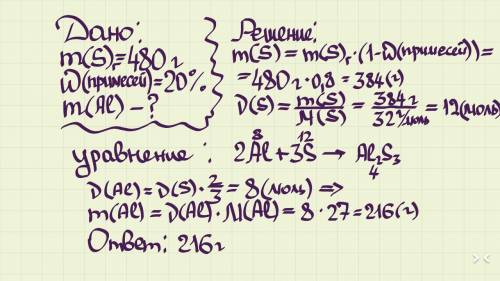 Дано:
m(S)г=480г
W(примесей)=20%
m(Al) - ?
Решение:
m(S) = m(S)г·(1-W(примесей))=
=480г·0,8 = 384(г)
D(S) = m(S)/M(S) = 384г/32г/моль = 12(моль)
8 12
уравнение: 2Al+3S → Al₂S₃
4
D(Al) = D(S)·2/3 = 8(моль) =>
m(Al) = D(Al)·M(Al) = 8·27=216(г)
Ответ: 216г